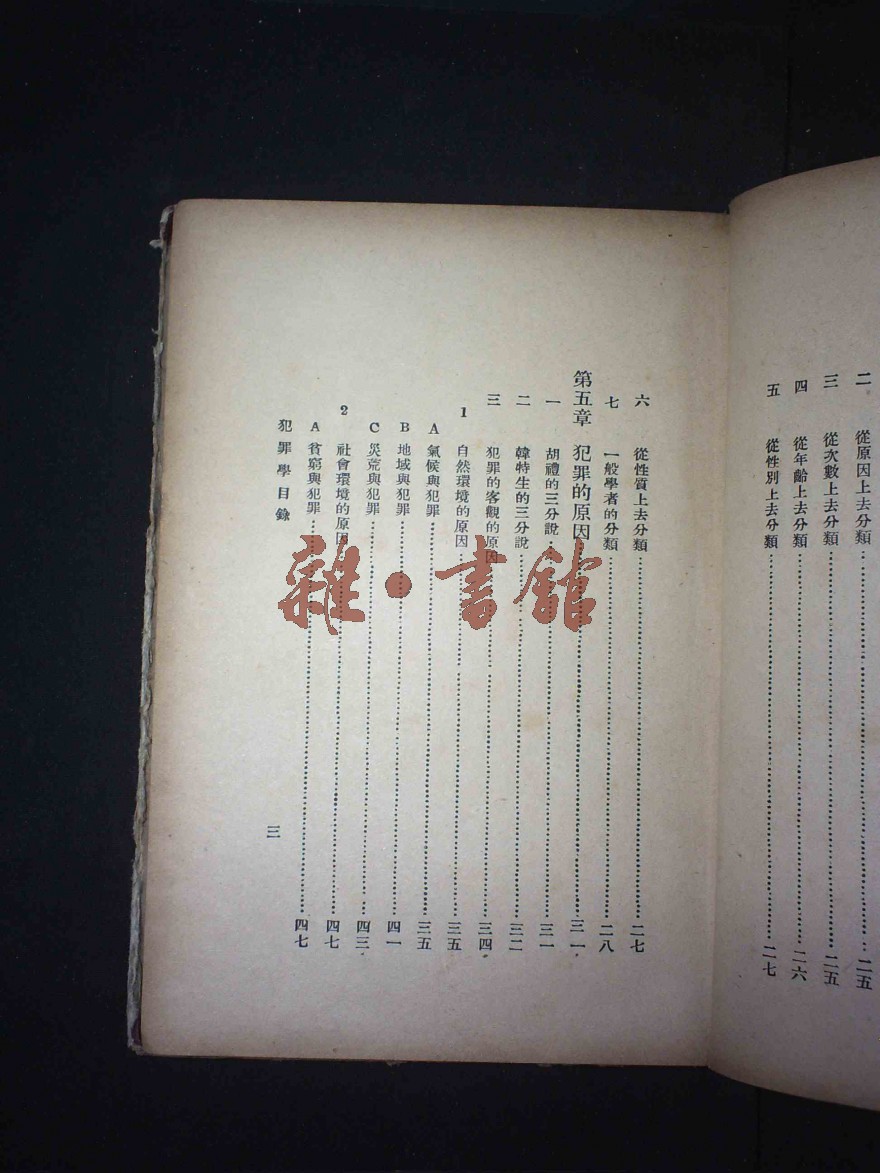 二 從原因上去分類……二五
三 從次數上去分類……二五
四 從年齡上去分類……二六
五 從性別上去分類……二七
六 從性質上去分類……二七
七 一般學者的分類……二八
第五章 犯罪的原因……三一
一 胡禮的三分說……三一
二 韓特生的三分說……三二
三 犯罪的客觀的原因……三四
1 自然環境的原因……三五
A 氣候與犯罪……三五
B 地域與犯罪……四一
C 災荒與犯罪……四三
2 社會環境的原因……四七
A 貧窮與犯罪……四七
犯罪學目錄
三
雜·書館